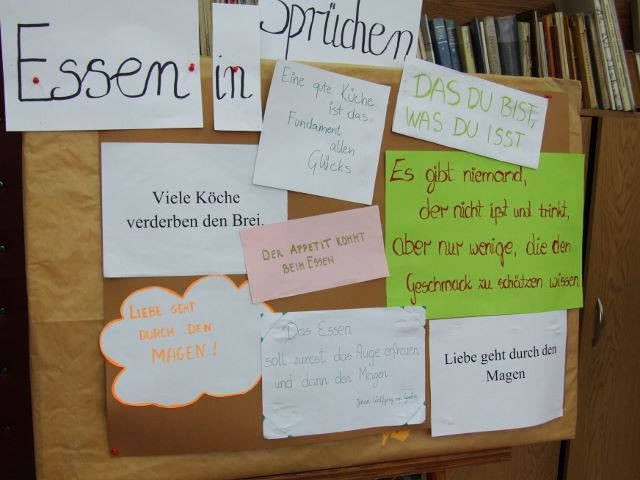 Essen in Sprüchen
Eine gute Küche
ist das
Fundament
allen
Glücks
DAS DU BIST,
WAS DU ISST
Viele Köche
verderben den Brei.
Es gibt niemand,
der nicht ißt und trinkt,
aber nur wenige, die den
Geschmack zu schätzen wissen
DER APPETIT KOMMT
BEIM ESSEN
LIEBE GEHT
DURCH DEN
MAGEN!
Das Essen
soll zurest das Auge erfreuen
und dann den Magen
Johan Wolfgang von Goethe
Liebe geht durch den
Magen